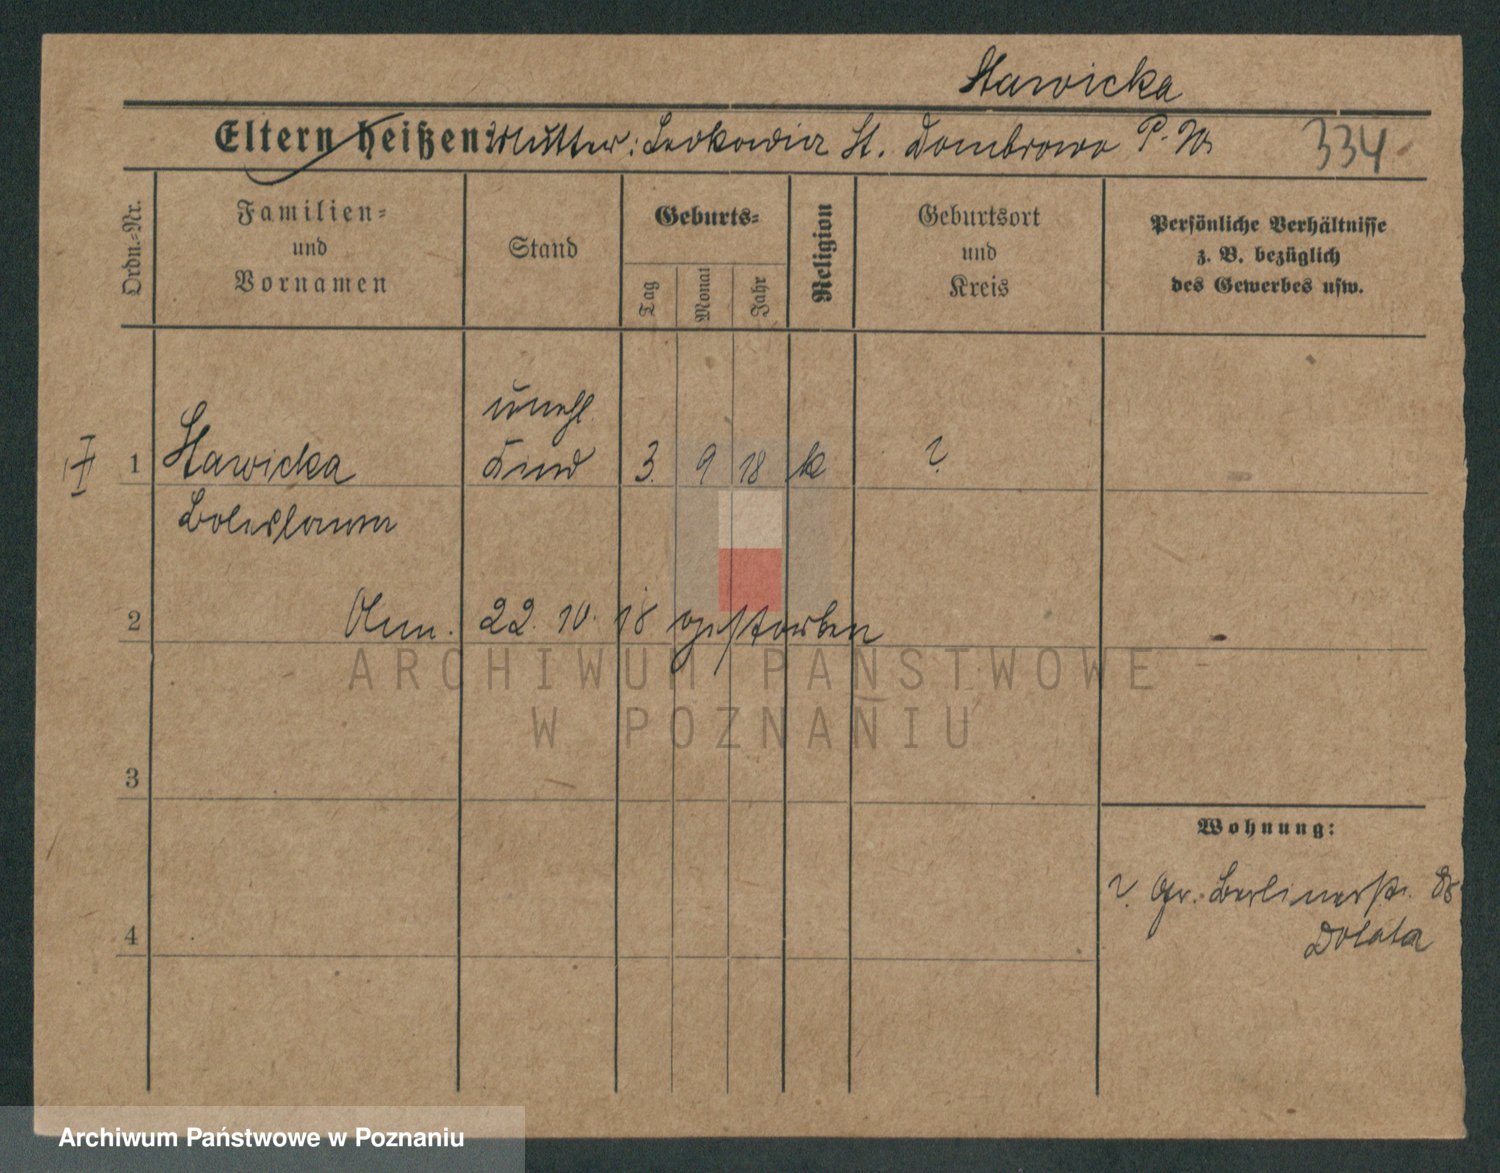 Stawicka
Eltern heißen: Mutter: Leokadia St. Dombrowo P. W. 334
Ordn.-Nr.
Familien-
und
Vornamen
Stand
Geburts-
Tag
Monat
Jahr
Religion
Geburtsort
und
Kreis
Persönliche Verhältnisse
z. B. bezüglich
des Gewerbes usw.
unehl.
1 Stawicka Kind 3. 9 18 k ?
Boleslawa
2 Am. 22. 10. 18 gestorben
ARCHIWUM PAŃSTWOWE
W POZNANIU
3
Wohnung:
Gr. Berlinerstr. 88
Dolata
4
Archiwum Państwowe w Poznaniu